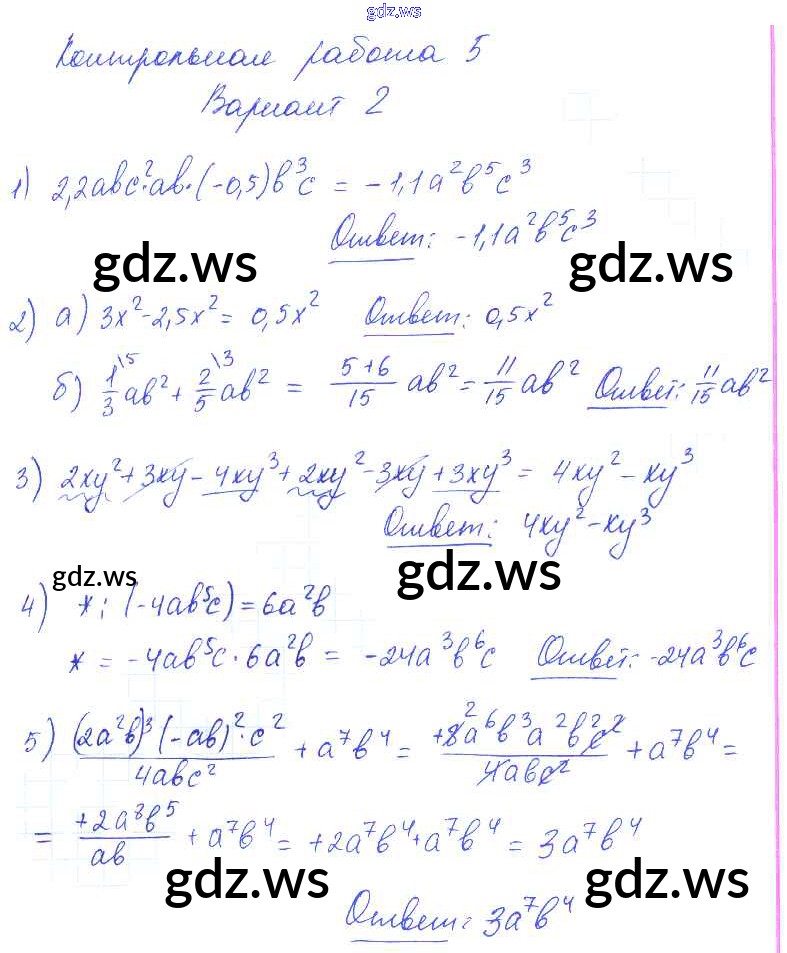 gdz.ws
Контрольная работа 5
Вариант 2
1) 2,2abc²·ab·(-0,5)b³c = -1,1a²b⁵c³
Ответ: -1,1a²b⁵c³
gdz.ws gdz.ws
2) а) 3x²-2,5x² = 0,5x² Ответ: 0,5x²
б) 1\5/3 ab² + 2\3/5 ab² = 5+6/15 ab² = 11/15 ab² Ответ: 11/15 ab²
3) 2xy²+3xy-4xy³+2xy²-3xy+3xy³ = 4xy²-xy³
Ответ: 4xy²-xy³
gdz.ws gdz.ws
4) *: (-4ab⁵c) = 6a²b
* = -4ab⁵c·6a²b = -24a³b⁶c Ответ: -24a³b⁶c
5) (2a²b)³(-ab)²·c²/4abc² + a⁷b⁴ = +8²a⁶b³a²b²c²/4abc² + a⁷b⁴ =
= +2a⁸b⁵/ab + a⁷b⁴ = +2a⁷b⁴+a⁷b⁴ = 3a⁷b⁴
gdz.ws gdz.ws
Ответ: 3a⁷b⁴